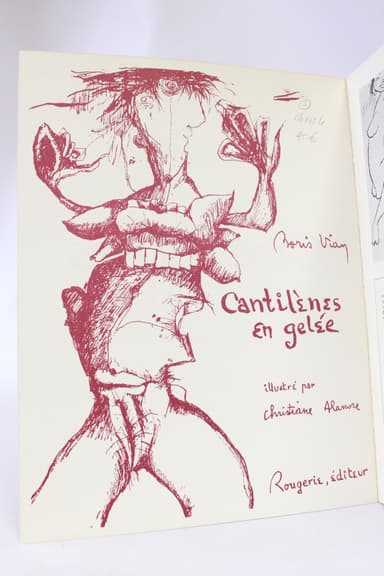 Boris Vian
Cantilènes
en gelée
illustré par
Christiane Alanore
Rougerie, éditeur